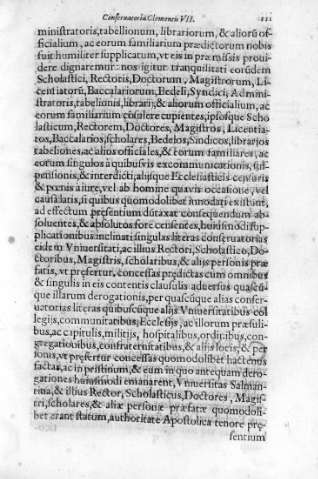 Conseruatoria Clementis VII. 111
ministratoris, tabellionum, librariorum, & aliorũ of-
ficialium, ac eorum familiarium prædictorum nobis
fuit humiliter supplicatum, vt eis in præmissis proui
dere dignaremur. nos igitur tranquilitati eorũdem
Scholastici, Rectoris, Doctorum, Magistrorum, Li-
centiatorũ, Baccalariorum, Bedeli, Syndaci, Admini-
stratoris, tabellionis, librarij, & aliorum officialium, ac
eorum familiarium cõsulere cupientes, ipsosque Scho
lasticum, Rectorem, Doctores, Magistros, Licentia-
tos, Baccalarios, scholares, Bedelos, Sindicos, librarios
tabeliones, ac alios officiales, & eorum familiares, ac
eorum singulos à quibusvis excommunicationis, sus-
pensionis, & interdicti, alijsque Ecclesiasticis censuris
& pœnis à iure, vel ab homine quavis occasione, vel
causa latis, si quibus quomodolibet innodati existunt,
ad effectum presentium dũtaxat consequendum ab-
soluentes, & absolutos fore censentes, huiusmodi sup-
plicationibus inclinati singulas literas conseruatorias
eidem Vniuersitati, ac illius Rectori, Scholastico, Do-
ctoribus, Magistris, scholaribus, & alijs personis præ
fatis, vt prefertur, concessas prędictas cum omnibus
& singulis in eis contentis clausulis aduersus quascũ-
que illarum derogationis, per quascũque alias conser-
uatorias literas quibuscũque alijs Vniuersitatibus col
legijs, communitatibus, Ecclesijs, ac illorum præsuli-
bus, ac capitulis, militijs, hospitalibus, ordinibus, con-
gregationibus, confraternitatibus, & alijs locis, & per
sonis, vt prefertur concessas quomodolibet hactenus
factas, ac in pristinum, & eum in quo antequam dero-
gationes huiusmodi emanarent, Vniuersitas Salman-
tina, & illius Rector, Scholasticus, Doctores, Magis-
tri, scholares, & aliæ personæ præfatæ quomodoli-
bet erant statum, authoritate Apostolica tenore prę-
sentium